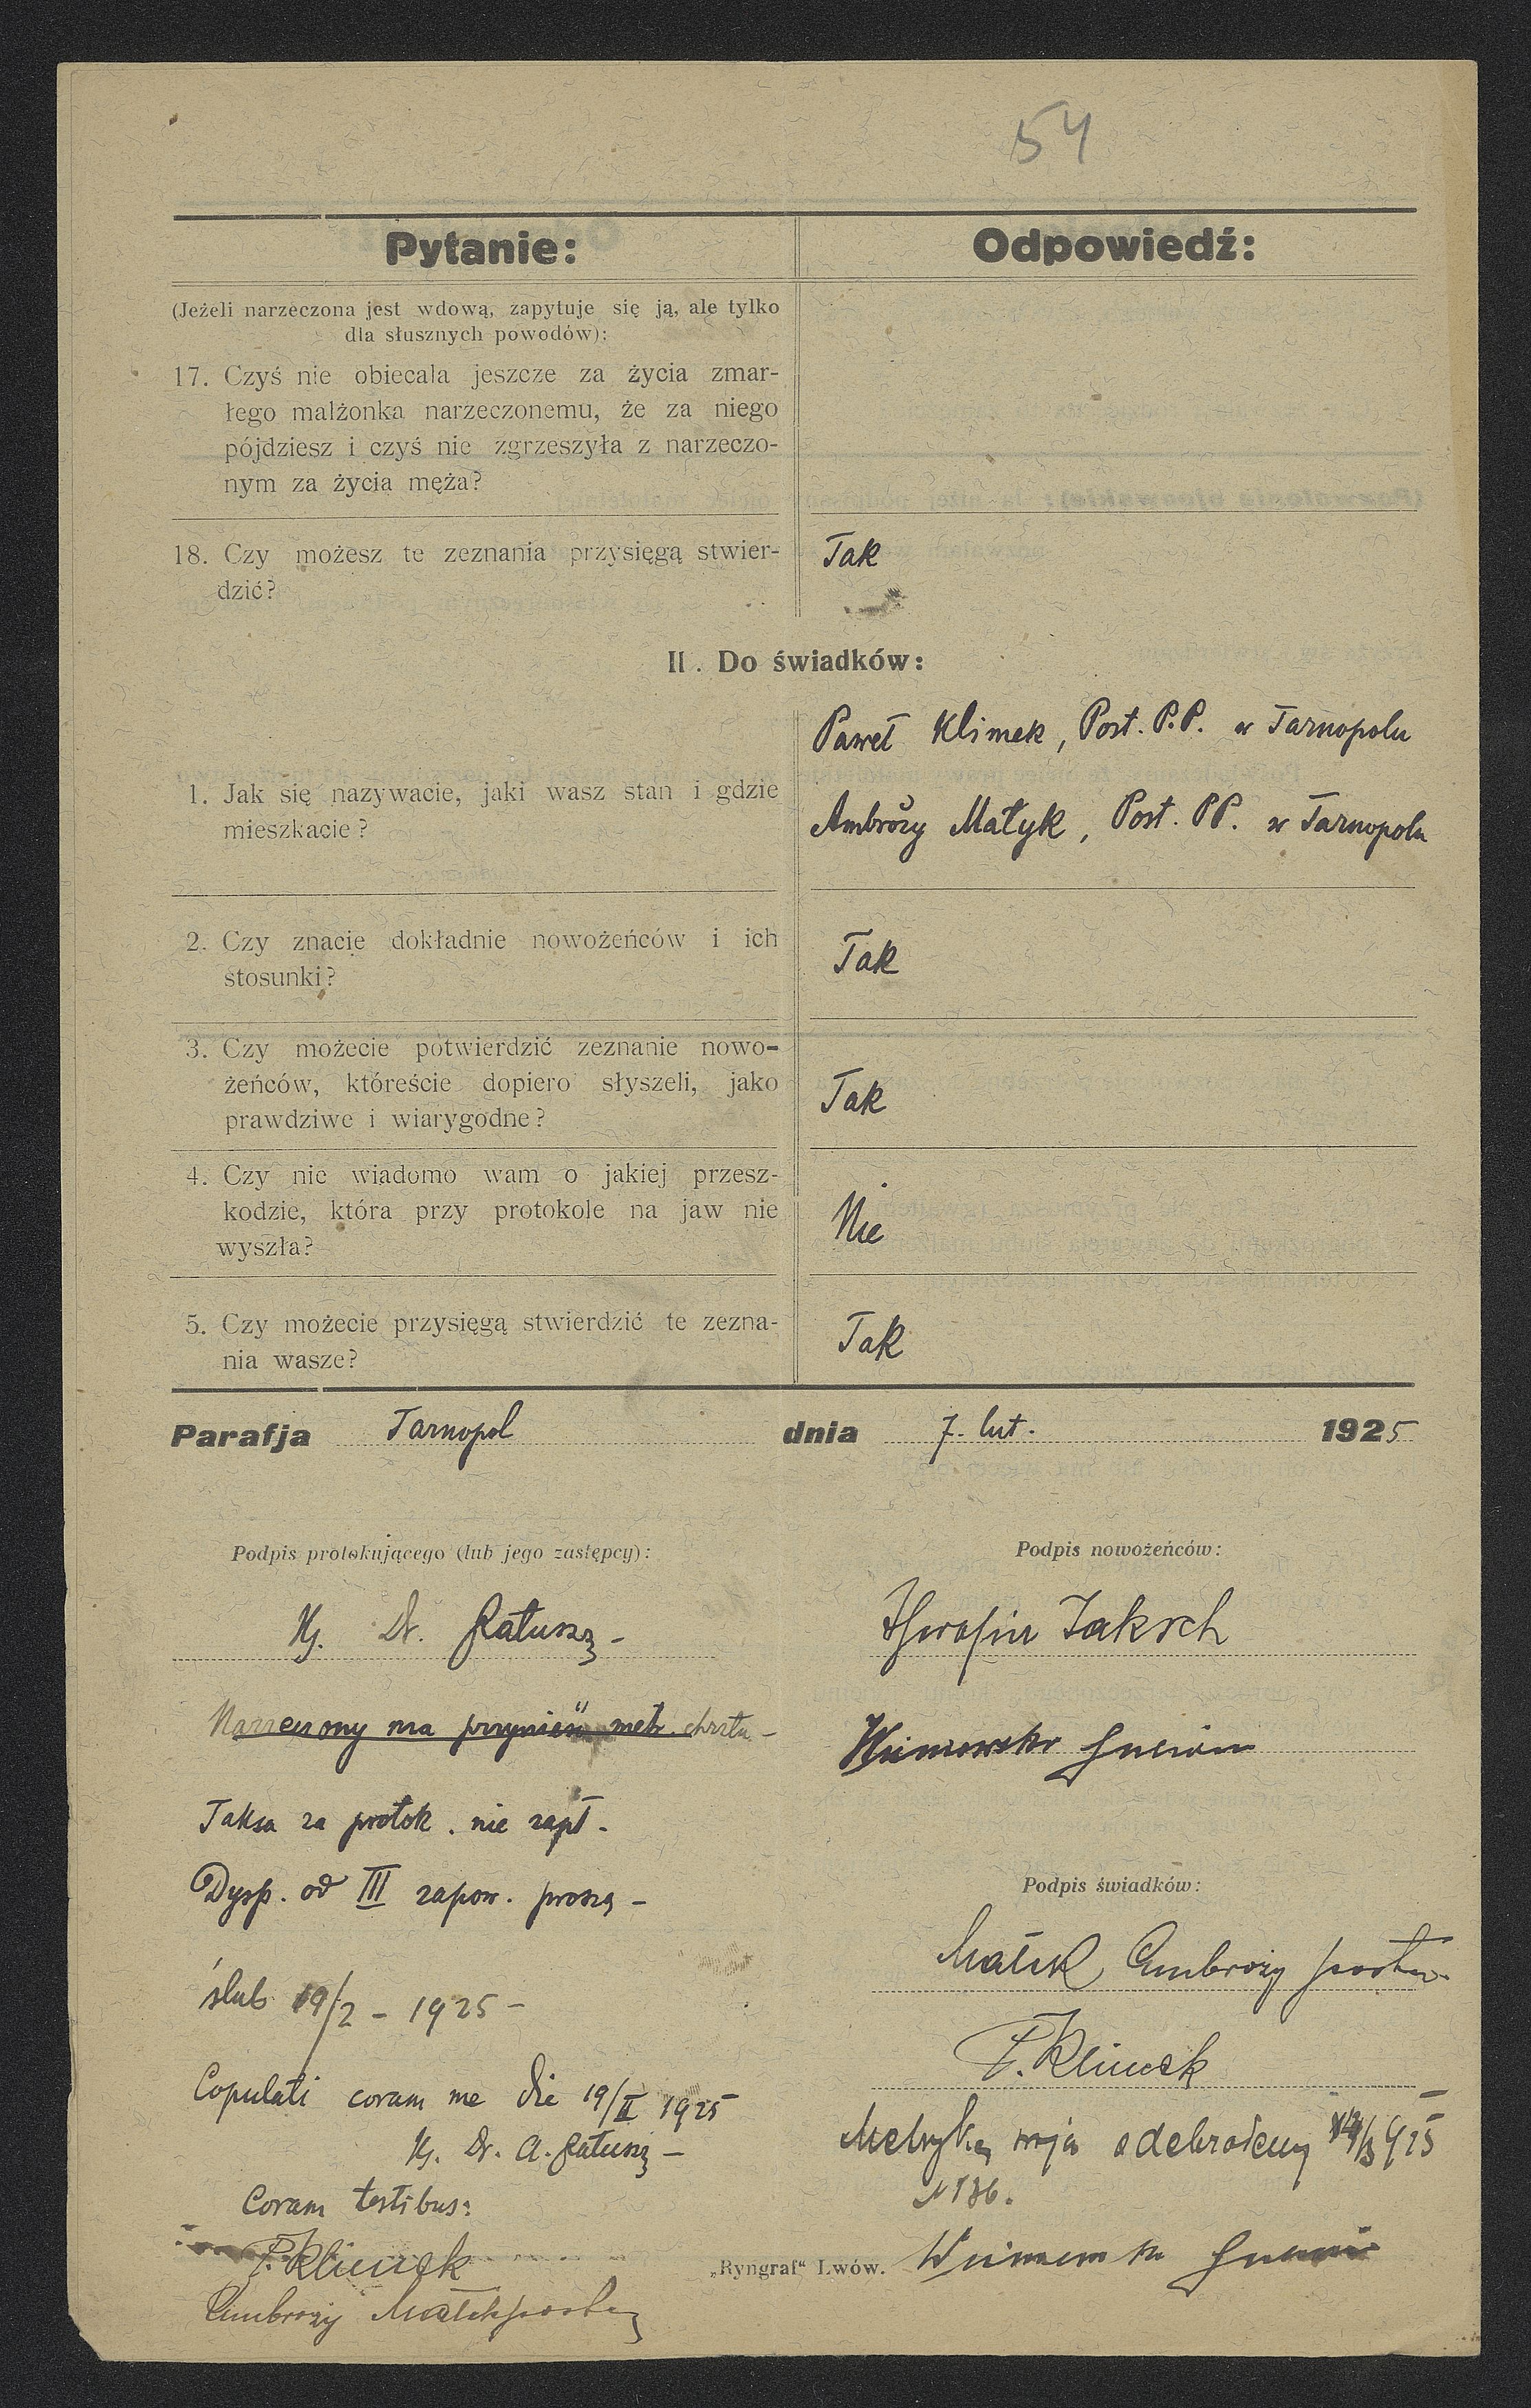 54
Pytanie:
Odpowiedź:
(Jeżeli narzeczona jest wdową, zapytuje się ją, ale tylko
dla słusznych powodów):
17. Czyś nie obiecala jeszcze za życia zmar-
łego malżonka narzeczonemu, że za niego
pójdziesz i czyś nie zgrzeszyła z narzeczo-
nym za życia męża?
18. Czy możesz te zeznania przysięgą stwier-
dzić?
Tak
II. Do świadków:
1. Jak się nazywacie, jaki wasz stan i gdzie
mieszkacie?
Paweł Klimek, Post. P.P. w Tarnopolu
Ambroży Małyk, Post. PP. w Tarnopolu
2. Czy znacie dokładnie nowożeńców i ich
stosunki?
Tak
3. Czy możecie potwierdzić zeznanie nowo-
żeńców, któreście dopiero słyszeli, jako
prawdziwe i wiarygodne?
Tak
4. Czy nie wiadomo wam o jakiej przesz-
kodzie, która przy protokole na jaw nie
wyszła?
Nie
5. Czy możecie przysięgą stwierdzić te zezna-
nia wasze?
Tak
Parafja Tarnopol dnia 7. lut. 1925
Podpis protokującego (lub jego zastępcy):
Ks. Dr. Ratuszą -
Narzeczony ma przynieść metr. chrztu -
Taksa za protok. nie zapł.
Dysp. od III zapow. proszą -
ślub 19/2 - 1925 -
Copulati coram me die 19/II 1925
Ks. Dr. A. Ratuszą -
Coram testibus:
P. Klimek
Ambroży
Podpis nowożeńców:
Jaksch
Podpis świadków:
Ambroży
P. Klimek
Metrykę moją 925
N 136.
„Ryngraf“ Lwów.